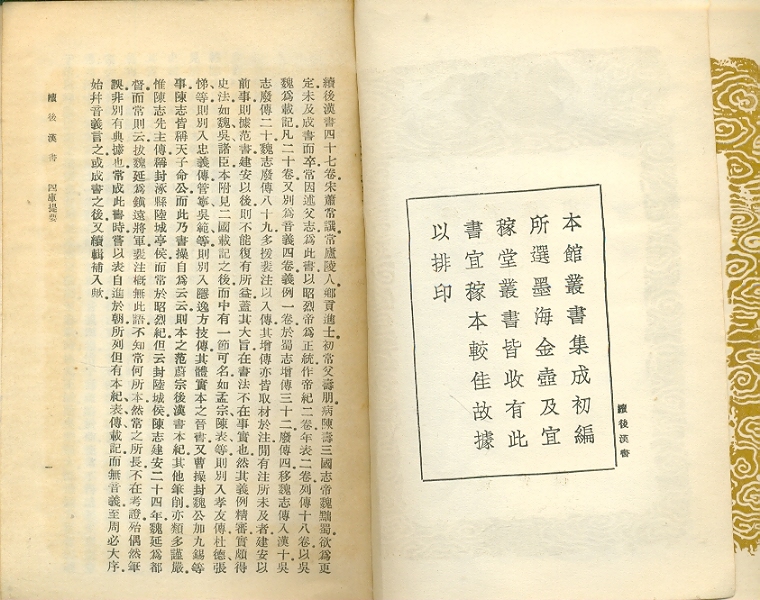 本館叢書集成初編
所選墨海金壺及宜
稼堂叢書皆收有此
書宜稼本較佳故據
以排印
續後漢書
續後漢書四十七卷宋蕭常譔常廬陵人鄉貢進士初常父壽朋病陳壽三國志帝魏黜蜀欲爲更
定未及成書而卒常因述父志爲此書以昭烈帝爲正統作帝紀二卷年表二卷列傳十八卷以吳
魏爲載記凡二十卷又別爲音義四卷義例一卷於蜀志增傳三十二廢傳四移魏志傳入漢十吳
志廢傳二十魏志廢傳八十九多援裴注以入傳其增傳亦皆取材於注閒有注所未及者建安以
前事則據范書建安以後則不能復有所益蓋其大旨在書法不在事實也然其義例精審實頗得
史法如魏吳諸臣本附見二國載記之後而中有一節可名如孟宗陳表等則別入孝友傳杜德張
悌等則別入忠義傳管寧吳範等則別入隱逸方技傳其體實本之晉書又曹操封魏公加九錫等
事陳志皆稱天子命公而此乃書操自爲云云則本之范蔚宗後漢書本紀其他筆削亦類多謹嚴
惟陳志先主傳稱封涿縣陸城亭侯而常於昭烈紀但云封陸城侯陳志建安二十四年魏延爲都
督而常則云拔魏延爲鎮遠將軍裴注槪無此語不知常何所本然常之所長不在考證殆偶然筆
誤非別有典據也常成此書時嘗以表自進於朝所列但有本紀表傳載記而無音義至周必大序
始幷音義言之或成書之後又續輯補入歟
續後漢書 四庫提要
一